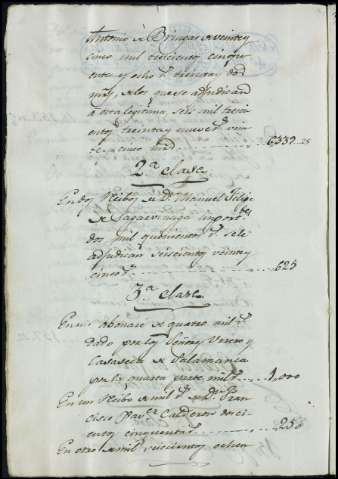 Antonio de Bringas de veinte y
cinco mil seiscientos cinq.ta
y ocho r.s treinta y dos
mrs, de los que se adjudican
a esta legitima, seis mil trecien
tos treinta y nueve r.s vein
te y cinco mrs 6339..25
2.a clase
En dos Recibos de D.n Manuel Felipe
de import.tes
dos mil quinientos r.s se le
adjudican seiscientos veinte y
cinco r.s 625
3.a clase
En un abonaré de quatro mil r.s
dado por los Señores y
de Salamanca
por la quarta parte mil r.s 1,000
En un Recibo de mil r.s de D.n Fran
cisco Xav.er Calderon docien
tos cinquenta r.s 250
En otro de mil